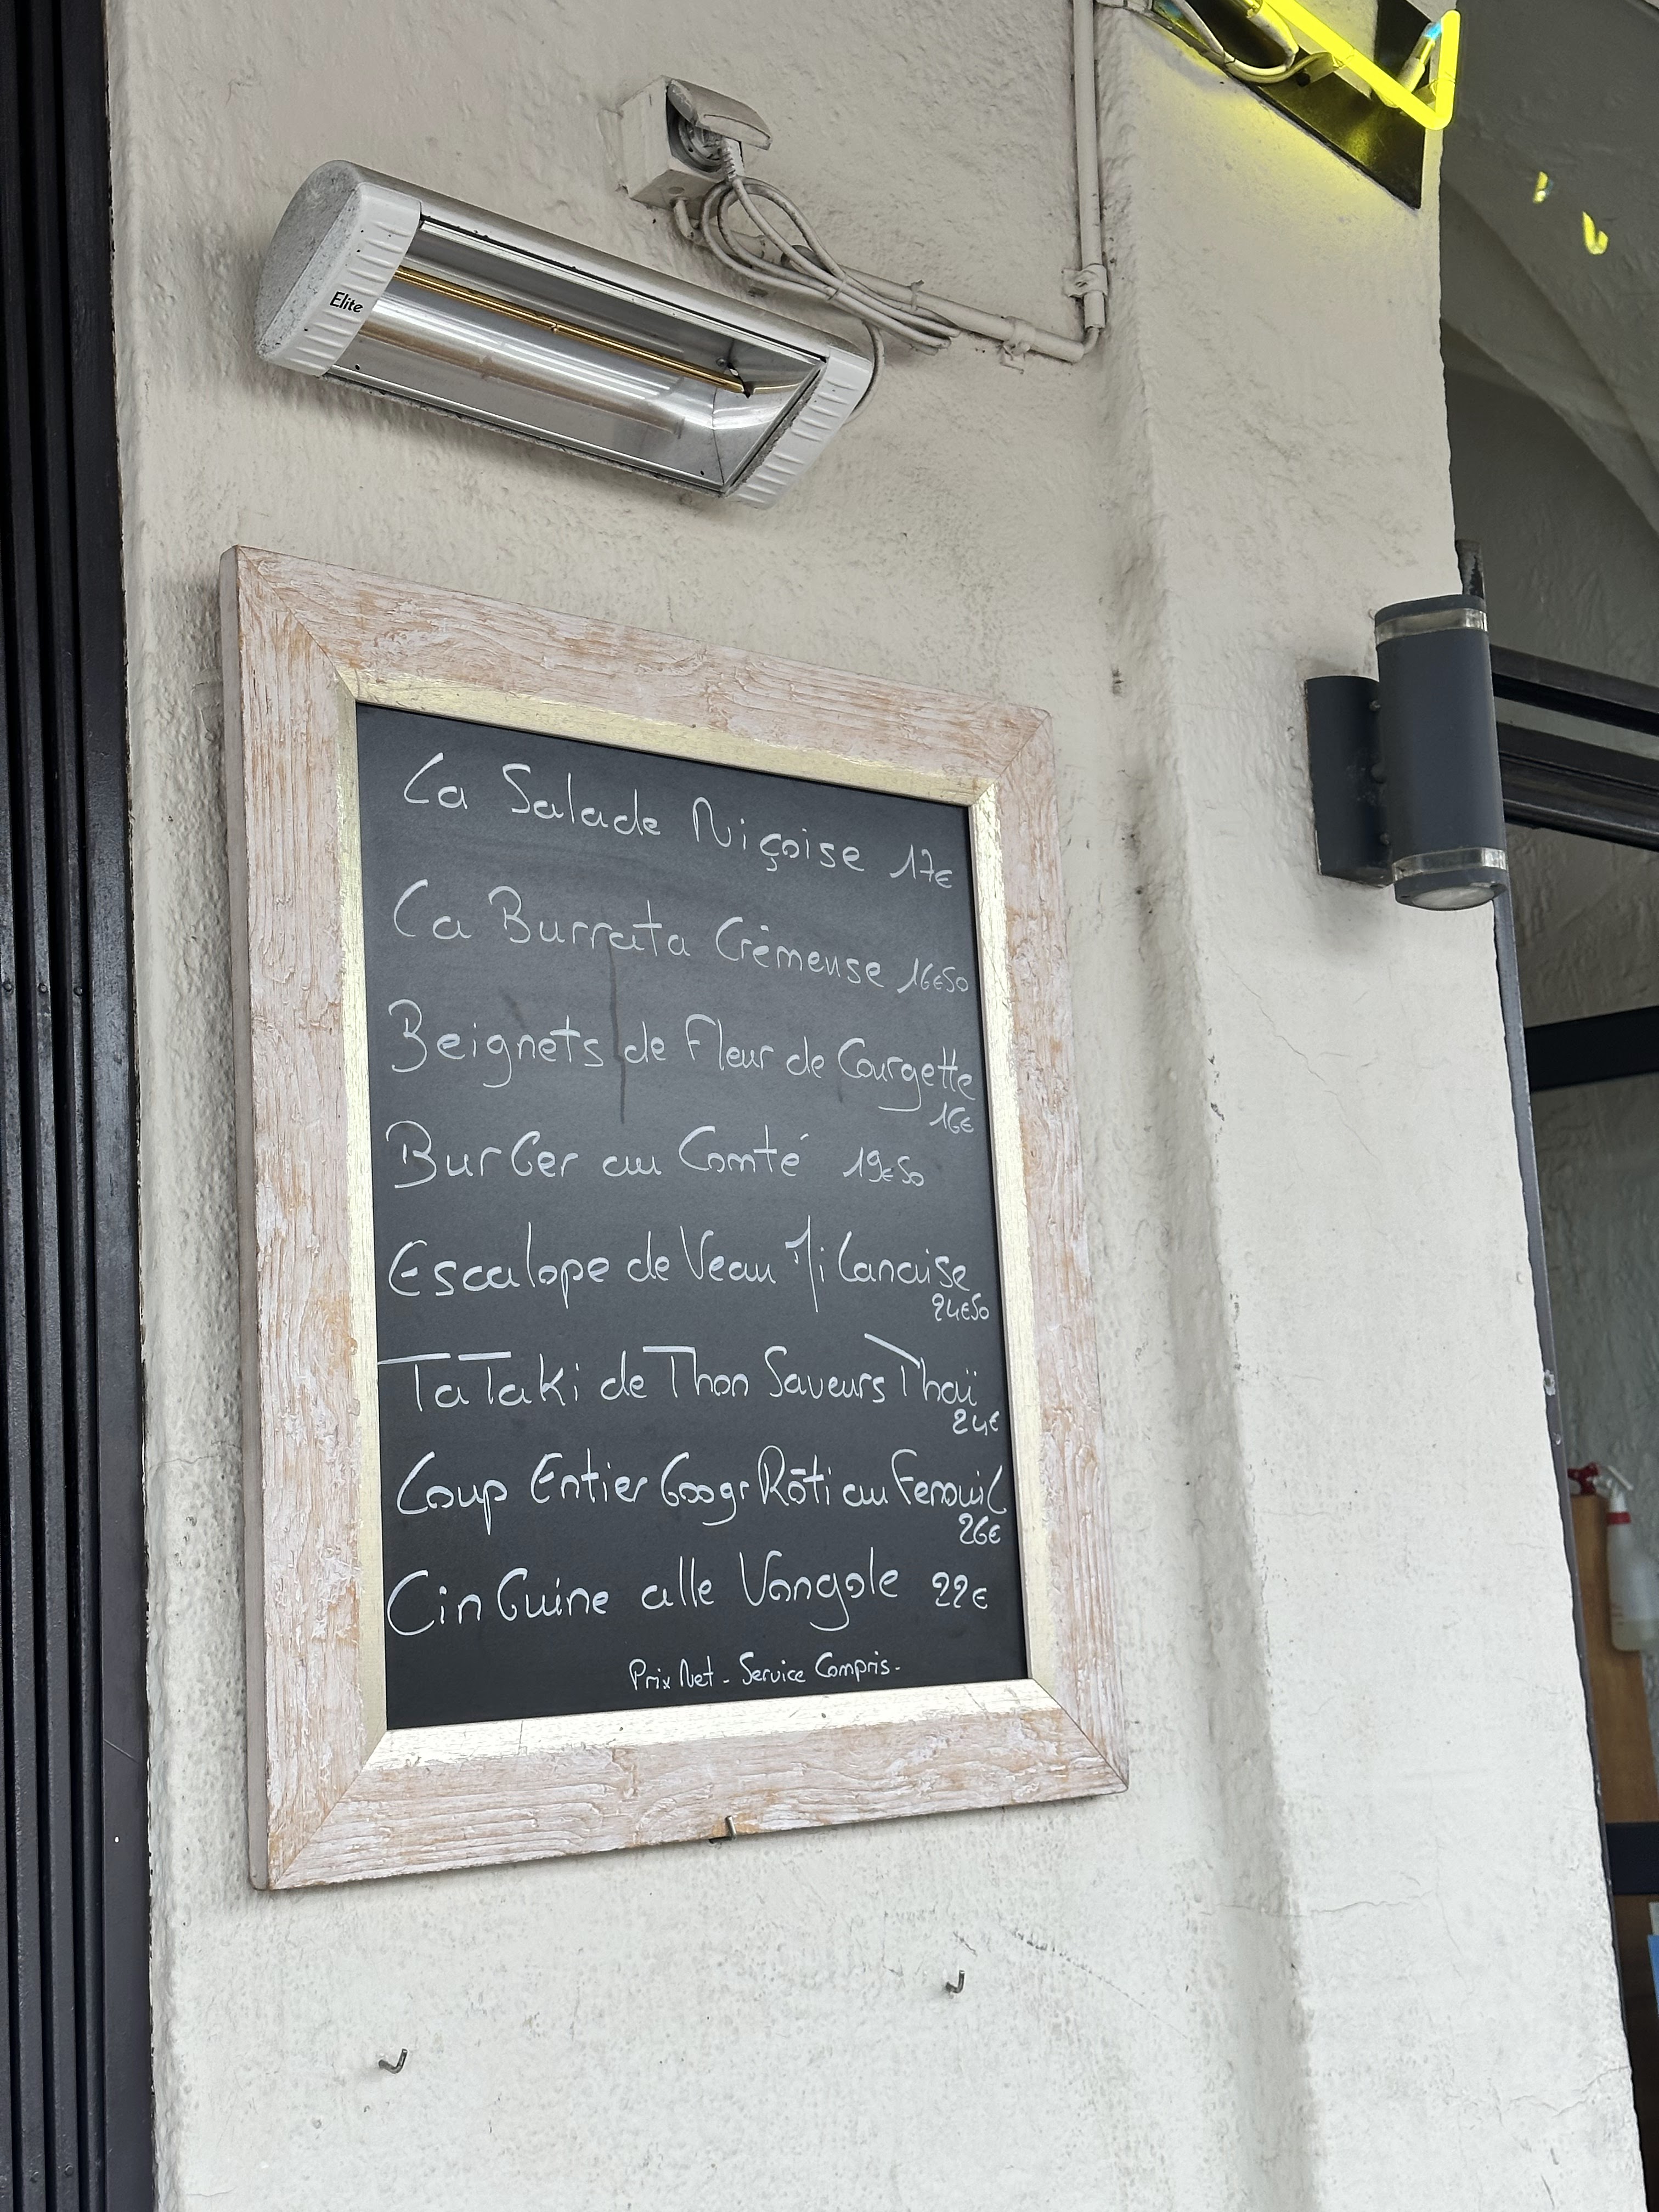 Elite
La Salade Niçoise 17€
La Burrata Crémeuse 16€50
Beignets de Fleur de Courgette
16€
Burger au Comté 19€50
Escalope de Veau Milanaise
24€50
Tataki de Thon Saveurs Thaï
24€
Loup Entier 600gr Rôti au Fenouil
26€
Linguine alle Vongole 22€
Prix Net - Service Compris -